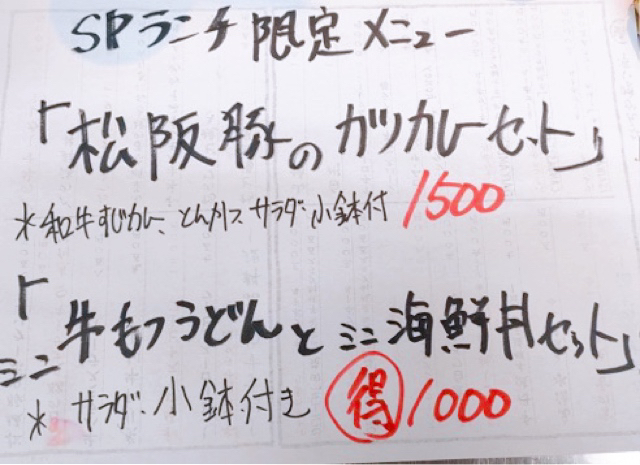 SPランチ限定メニュー
「松阪豚のカツカレーセット」
*和牛すじカレー、とんカツ、サラダ、小鉢付 1500
「牛もつうどんとミニ海鮮丼セット」
ミニ
* サラダ、小鉢付き 得 1000